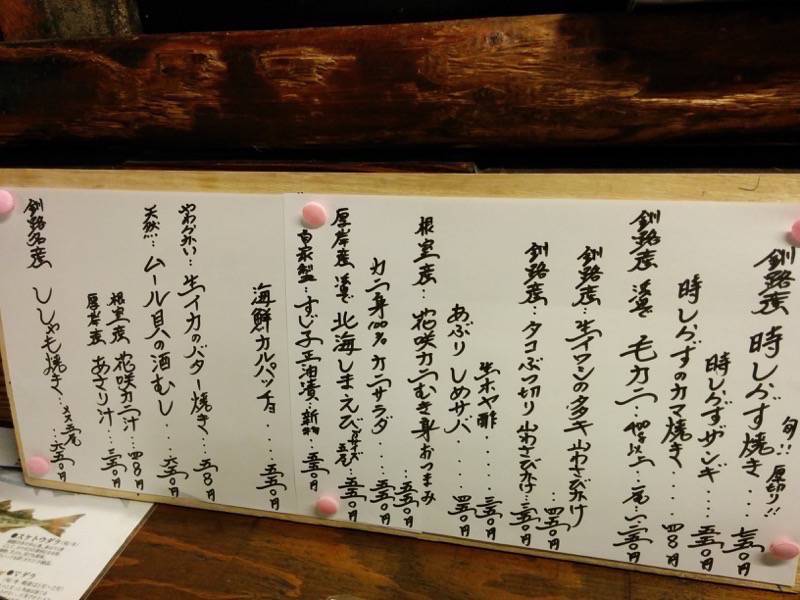 旬!! 厚切り!!
釧路産 時しらず焼き・・・七五〇円
時しらずザンギ・・・五五〇円
時しらずのカマ焼き・・・四八〇円
釧路産 浜ゆで 毛ガニ 400g以上 一尾
釧路産…生イワシのタタキ 山わさび分け
釧路産…タコぶつ切り 山わさび分け
生ホヤ酢・・・三五〇円
あぶり しめサバ・・・・四五〇円
根室産…花咲カニむき身おつまみ・・五五〇円
カニ身100% カニサラダ・・・・五五〇円
厚岸産 浜ゆで 北海しまえび 五尾・・・五五〇円
自家製…すじ子正油漬…新物・・五五〇円
海鮮カルパッチョ・・・五五〇円
やわらかい…生イカのバター焼き・・・五八〇円
天然…ムール貝の酒むし・・・六五〇円
根室産 花咲カニ汁・・・四八〇円
厚岸産 あさり汁・・・三五〇円
釧路名産 ししゃも焼き・・・メス三尾・・・六五〇円
●スケトウダラ
●マダラ